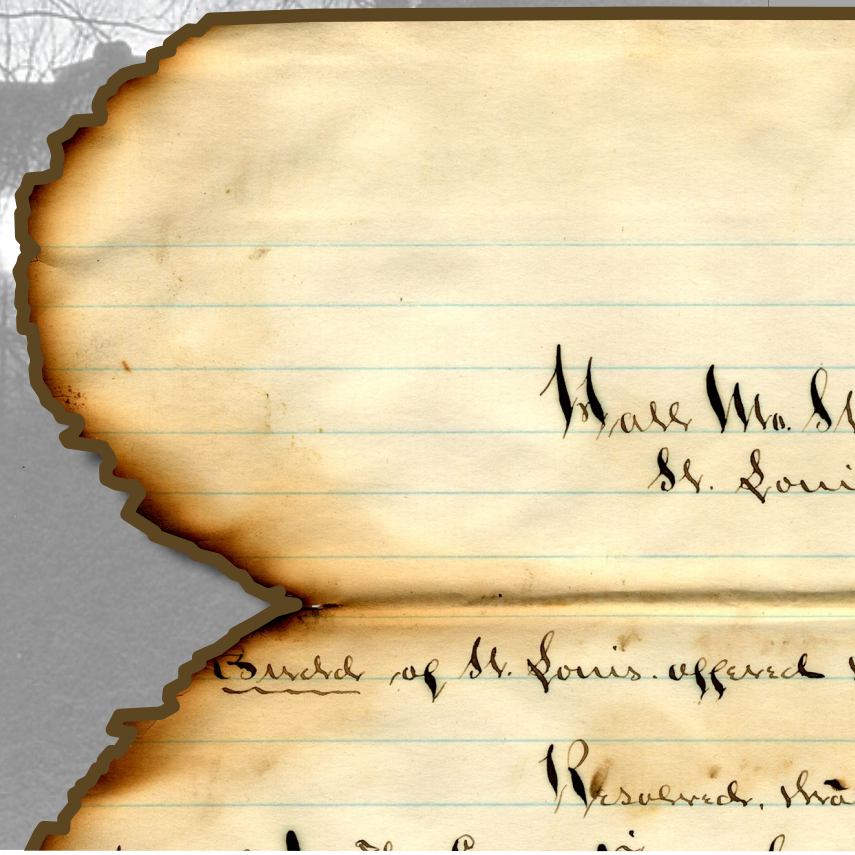 Hall Mo. St
St. Loui
Budd of St. Louis. offered
Resolved, tha